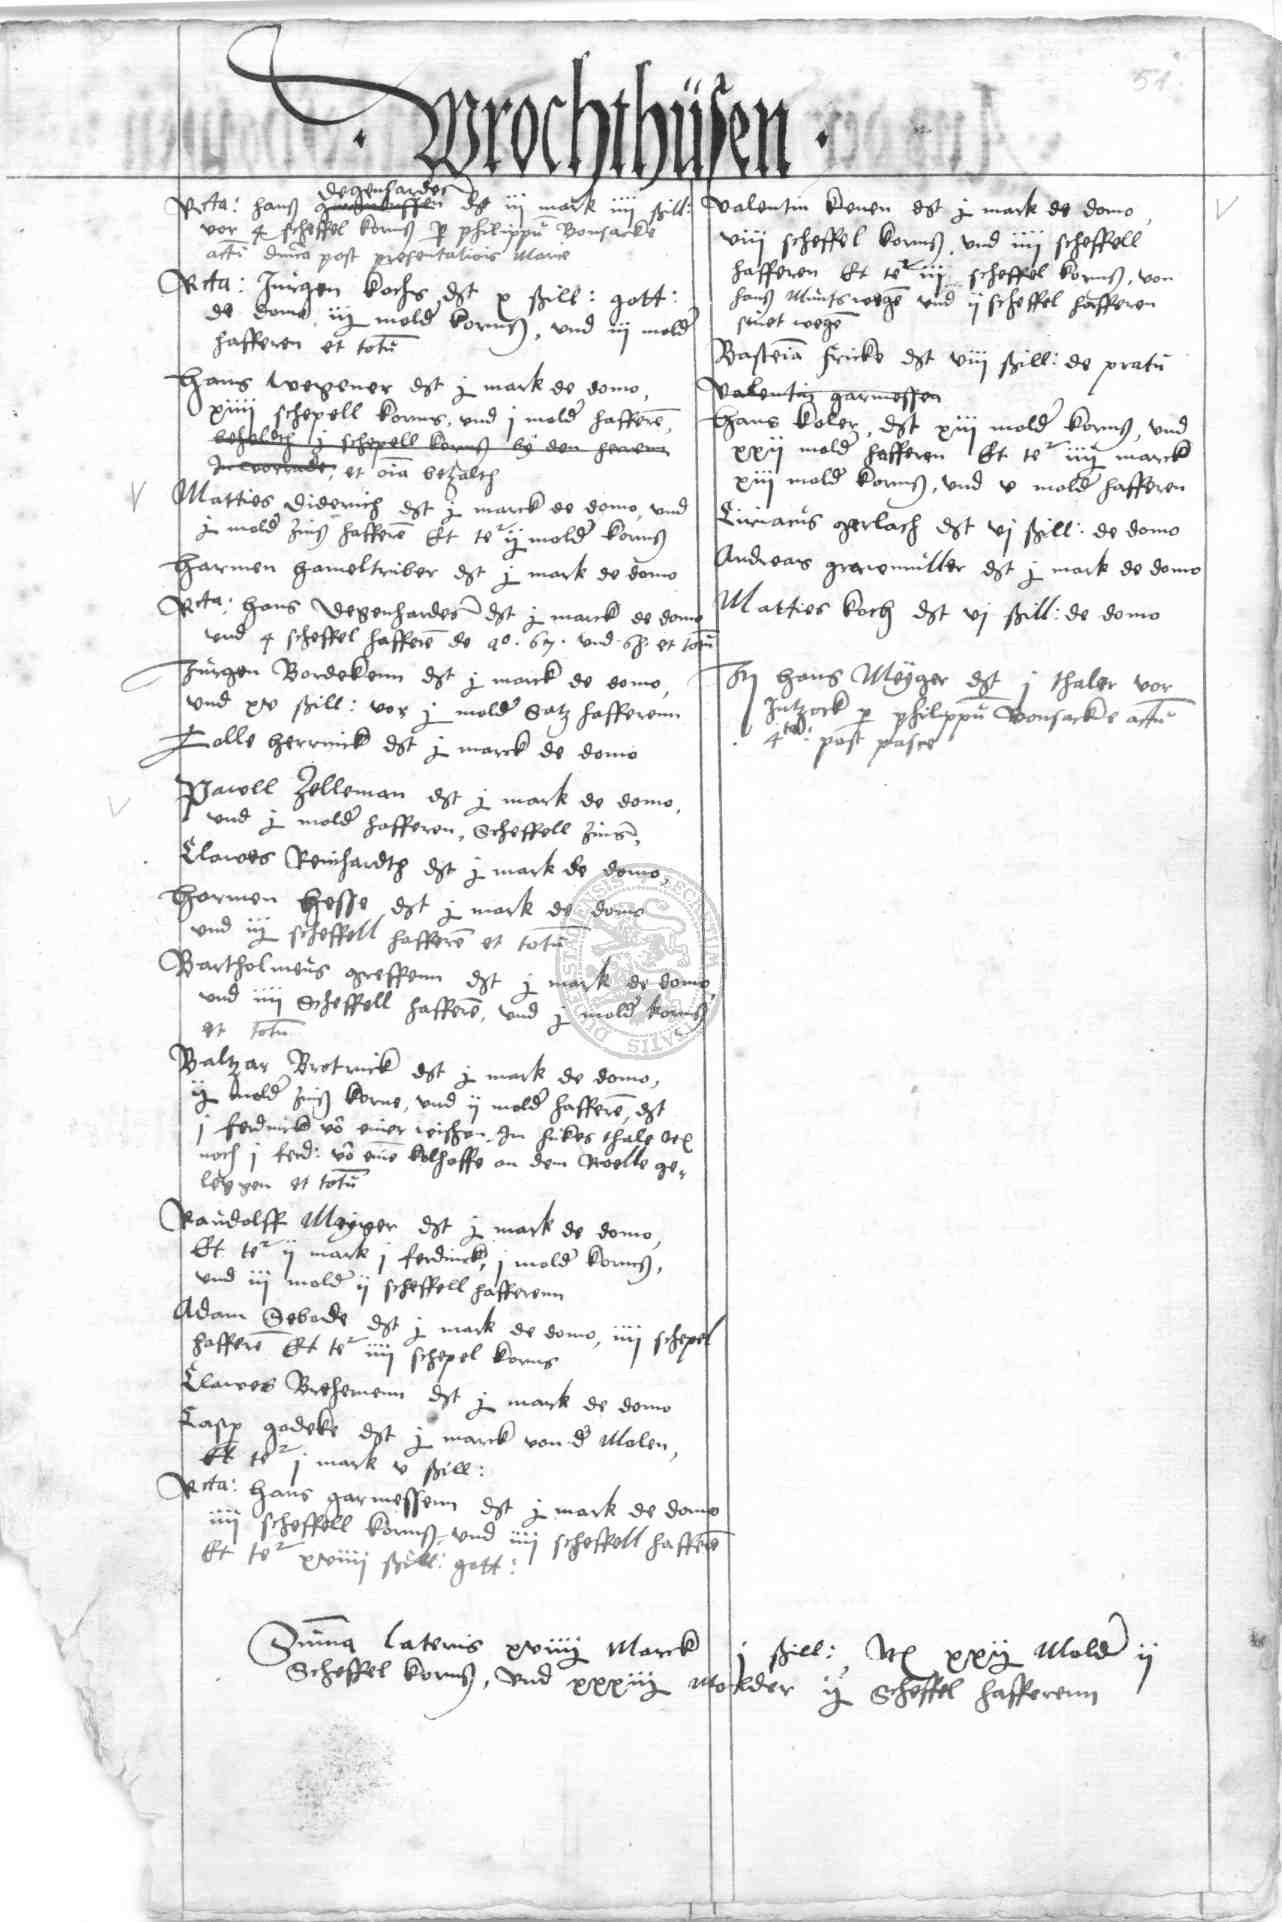 51.
· Wrochthüsen ·
degenhardes
Rcta: hans dt iij mark iiij ßill:
vor 4 scheffel korns p philippū Bonsacke
actū dnica post presentationis Marie
Rcta: Jurgen Kochs dt x ßill: gott:
de domo, iij molder korns, vnd iij molder
hafferen et totū
Hans wegener dt j mark de domo,
xiiij schepell korns, vnd j molder hafferē,
beholdth j schepell korns by den herenn
et oīa betzalth
Matties Diderich dt j marck de domo, vnd
j molder zins hafferē Et te² ij molder korns
Harmen hameltriber dt j mark de domo
Rcta: Hans Degenhardes dt j marck de domo
vnd 4 scheffel hafferē de ao. 67. vnd 68. et totū
Jurgen Bordekenn dt j marck de domo,
vnd xv ßill: vor j molder Satz hafferenn
Tolle herrinck dt j marck de domo
Pawell Zelleman dt j mark de domo,
vnd j molder hafferen, Scheffell zins,
Clawes Reinhardth dt j mark de domo,
Harmen Hesse dt j mark de domo
vnd iij scheffell hafferē et totū
Bartholmeus greffenn dt j mark de domo,
vnd iiij Scheffell hafferē, vnd j molder korns
et totū
Baltzar Brotruck dt j mark de domo,
ij molder zins korne, vnd ij molder hafferē, dt
j ferdinck vō einer wishen Jm hukes thale
noch j ferd: vō eine kolhoffe an dem Roelle ge,
legen et totū
Raudolff Meyger dt j mark de domo,
Et te² ij mark j ferdinck, j molder korns,
vnd iij molder ij scheffell hafferenn
Adam Sebode dt j mark de domo, iiij schepel
hafferē Et te² iiij schepel korns
Clawes Brehemenn dt j mark de domo
Casp godeke dt j marck von d Molen,
Et te² j mark v ßill:
Rcta: Hans garmessenn dt j mark de domo
iiij scheffell korns, vnd iiij scheffell hafferē
Et te² xviiij ßill: gott:
Valentin Kenen dt j mark de domo,
viij scheffel korns, vnd iiij scheffell
hafferen Et te² iij scheffel korns, von
hans Munts wegē vnd ij scheffel hafferen
sinet wegē
Basteiā fricke dt viij ßill: de pratū
Valentin garmessen
Hans Koler, dt xiij molder korns, vnd
xxij molder hafferen Et te² iiij marck
xiij molder korns, vnd v molder hafferen
Ciriacus gerlach dt vj ßill: de domo
Andreas grevemuller dt j mark de domo
Matties Koch dt vj ßill: de domo
Hans Meyger dt j thaler vor
Intzock p philippū Bonsacke actū
4ta: post pasce
Suma lateris xviiij Marck j ßill: xxij Molder ij
Scheffel korns, vnd xxxiij Molder ij Scheffel hafferenn